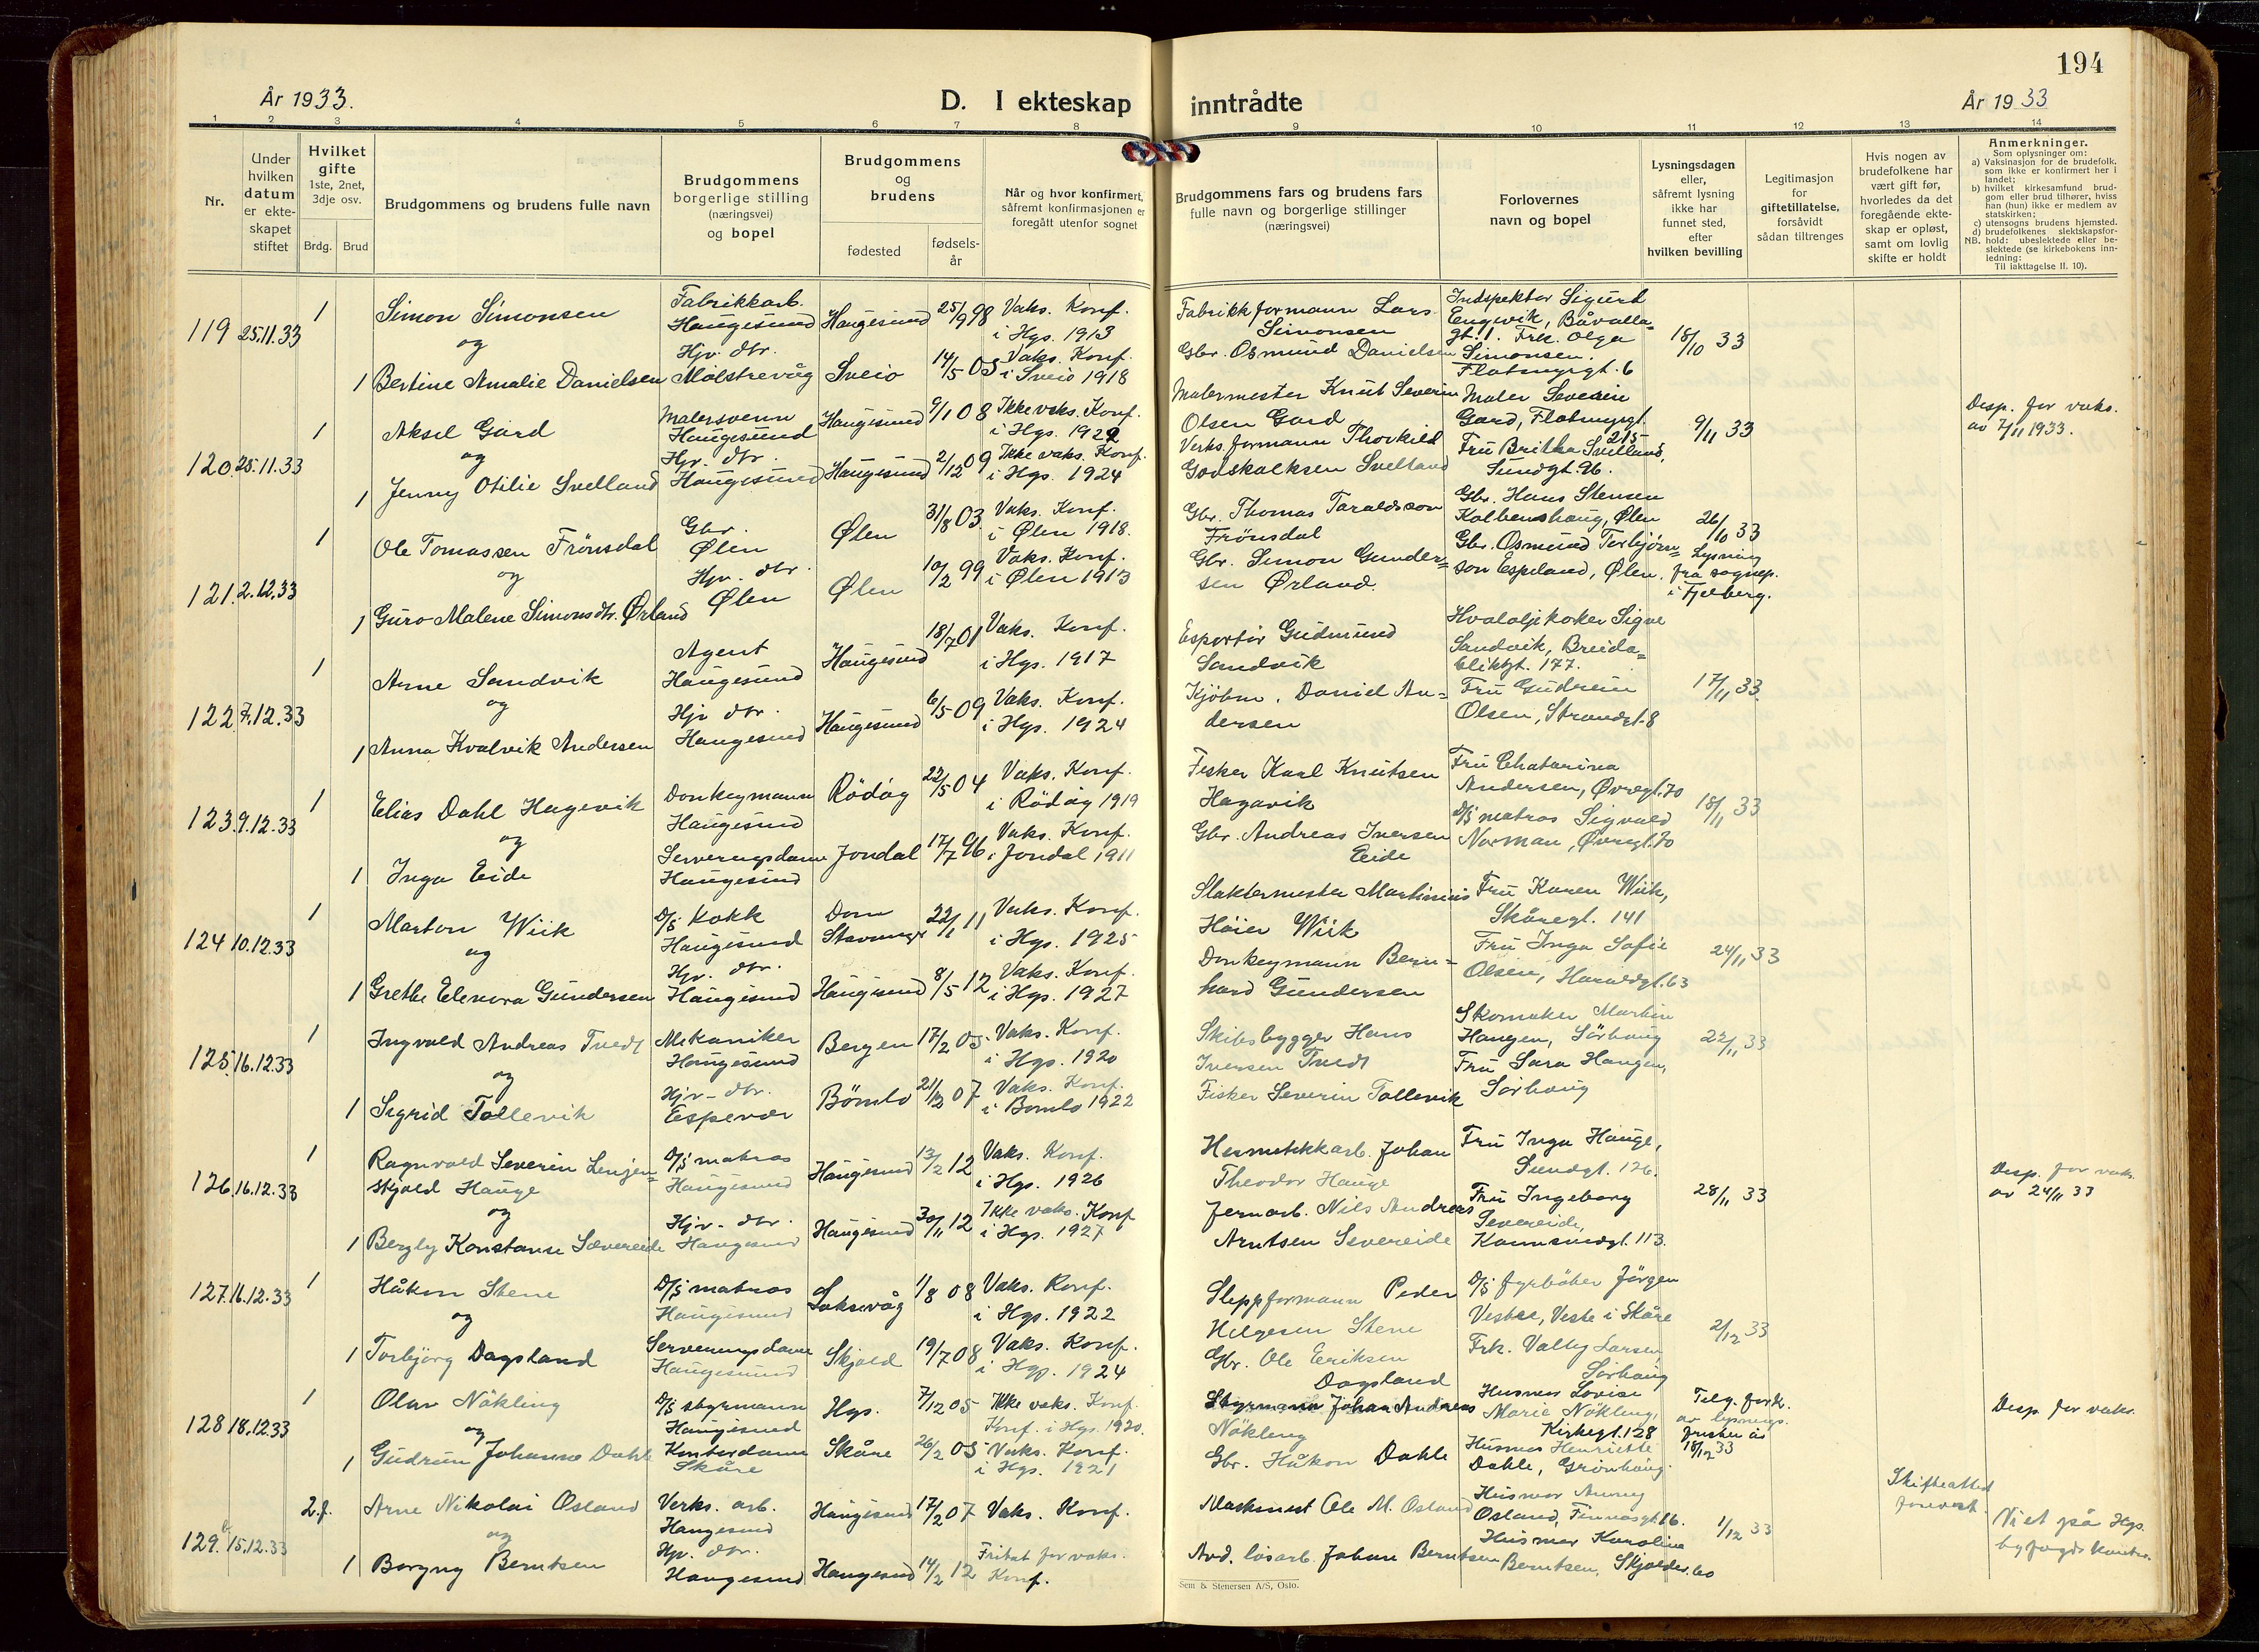 194
År 1933.
D. I ekteskap inntrådte
År 1933
1 2 3 4 5 6 7 8 9 10 11 12 13 14
Nr.
Under
hvilken
datum
er ekte-
skapet
stiftet
Hvilket
gifte
1ste, 2net,
3dje osv.
Brdg. Brud
Brudgommens og brudens fulle navn
Brudgommens
borgerlige stilling
(næringsvei)
og bopel
Brudgommens
og
brudens
fødested
fødsels-
år
Når og hvor konfirmert,
såfremt konfirmasjonen er
foregått utenfor sognet
Brudgommens fars og brudens fars
fulle navn og borgerlige stillinger
(næringsvei)
Forlovernes
navn og bopel
Lysningsdagen
eller,
såfremt lysning
ikke har
funnet sted,
efter
hvilken bevilling
Legitimasjon
for
giftetillatelse,
forsåvidt
sådan tiltrenges
Hvis nogen av
brudefolkene har
vært gift før,
hvorledes da det
foregående ekte-
skap er opløst,
samt om lovlig
skifte er holdt
Anmerkninger.
Som oplysninger om:
a) Vaksinasjon for de brudefolk.
som ikke er konfirmert her i
landet;
b) hvilket kirkesamfund brud-
gom eller brud tilhører, hviss
han (hun) ikke er medlem av
statskirken;
c) utensogns brudens hjemsted.
d) brudefolkenes slektskapsfor-
NB. hold: ubeslektede eller be-
slektede (se kirkebokens inn-
ledning:
Til iakttagelse II. 10).
119 25.11.33
1 Simon Simonsen
og
1 Bertine Amalie Danielsen
Fabrikkarb.
Haugesund
Hjv. dtr.
Mølstrevåg
Haugesund 25/9 98 Vaks. Konf.
i Hgs. 1913
Sveio 14/5 05 Vaks. Konf.
i Sveio 1918
Fabrikkformann Lars
Simonsen
Gbr. Osmund Danielsen
Indspektør Sigurd
Engevik, Båvalla=
gt. 1. Frk. Olga
Simonsen.
Flotmyrgt. 6
18/10 33
120 25.11.33
1 Aksel Gard
og
1 Jenny Otilie Svelland
Malersvenn
Haugesund
Hjv. dtr.
Haugesund
Haugesund 9/1 08 Ikke vaks. Konf.
i Hgs. 1922
Haugesund 2/12 09 Ikke vaks. Konf.
i Hgs. 1924
Malermester Knut Severin
Olsen Gard
Verksformann Thorkild
Godskalksen Svelland
Maler Severin
Gard, Flotmyrgt.
215
Fru Britha Svelland,
Sundgt. 96.
9/11 33
Desp. for vaks.
av 7/11 1933.
121. 2.12.33
1 Ole Tomassen Frönsdal
og
1 Guro Malene Simonsdtr. Ørland
Gbr.
Ølen
Hjv. dtr.
Ølen
Ølen 31/8 03 Vaks. Konf.
i Ølen 1918.
Ølen 10/2 99 Vaks. Konf.
i Ølen 1913
Gbr. Thomas Taraldsson
Frönsdal
Gbr. Simon Gunder=
sen Ørland.
Gbr. Hans Stensen
Kolbenshaug, Ølen
Gbr. Osmund Torbjørn=
son Espeland, Ølen.
26/10 33
Lysning
fra sognep.
i Fjelberg.
122 7.12.33
1 Arne Sandvik
og
1 Anna Kvalvik Andersen
Agent
Haugesund
Hjv dtr.
Haugesund
Haugesund 18/7 01 Vaks. Konf.
i Hgs. 1917
Haugesund 6/5 09 Vaks. Konf.
i Hgs. 1924
Exportör Gudmund
Sandvik
Kjöbm. Daniel An=
dersen
Hvaloljekoker Signe
Sandvik, Breida=
blikgt. 177.
Fru Gudrun
Olsen, Strandgt. 8
17/11 33.
123. 9.12.33
1 Elias Dahl Hagevik
og
1 Inga Eide
Donkeymann
Haugesund
Serveringsdame
Haugesund
Rödöy 22/5 04 Vaks. Konf.
i Rödöy 1919
Jondal 17/7 96 Vaks. Konf.
i Jondal 1911
Fisker Karl Knutsen
Hagavik
Gbr. Andreas Iversen
Eide
Fru Chatarina
Andersen, Øvregt. 70
D/S matros Sigvald
Norman, Øvregt. 70
18/11 33
124 10.12.33
1 Marton Wiik
og
1 Grethe Elenora Gundersen
D/S kokk
Haugesund
Hjv. dtr.
Haugesund
Dom
Stavanger 22/1 11 Vaks. Konf.
i Hgs. 1925
Haugesund 8/5 12 Vaks. Konf.
i Hgs. 1927
Slaktermester Martinius
Höier Wiik
Donkeymann Bern=
hard Gundersen
Fru Karen Wiik,
Skåregt. 141
Fru Inga Sofie
Olsen, Haraldgt. 63
24/11 33
125. 16.12.33
1 Ingvald Andreas Tvedt
og
1 Sigrid Tollevik
Mekaniker
Haugesund
Hjv- dtr.
Espevær
Bergen 17/2 05 Vaks. Konf.
i Hgs. 1920
Bömlo 21/12 07 Vaks. Konf.
i Bomlo 1922
Skibsbygger Hans
Iversen Tvedt
Fisker Severin Tollevik
Skomaker Martin
Haugen, Sörhaug
Fru Sara Haugen,
Sörhaug
22/11 33
126. 16.12.33
1 Ragnvald Severin Lenjen=
skjold Hauge
og
1 Bergly Konstanse Sævereide
D/S matros
Haugesund
Hjv- dtr.
Haugesund
Haugesund 13/2 12 Vaks. Konf.
i Hgs. 1926
Haugesund 30/11 12 Ikke vaks. Konf
i Hgs. 1927
Hermetikkarb. Johan
Theodor Hauge
Jernarb. Nils Andreas
Arntsen Severeide
Fru Inga Hauge,
Sundgt. 126.
Fru Ingeborg
Severeide,
Karmsundgt. 113.
28/11 33
Desp. for vaks.
av 24/11 33
127. 16.12.33
1 Håkon Stene
og
1 Torbjörg Dagsland
D/S matros
Haugesund
Serveringsdame
Haugesund
Laksevåg 1/8 08 Vaks. Konf.
i Hgs. 1922
Skjold 19/7 08 Vaks. Konf.
i Hgs. 1924
Sleppformann Peder
Helgesen Stene
Gbr. Ole Eriksen
Dagsland
D/S fyrböter Jörgen
Vestre, Veste i Skåre
Frk. Valley Larsen
Sörhaug
2/12 33
128 18.12.33
1 Olav Nökling
og
1 Gudrun Johanne Dahle
D/S styrmann
Haugesund
Kontordame
Skåre
Hgs. 7/12 05 Ikke vaks. Konf.
Konf. i Hgs. 1920.
Skåre 26/2 05 Vaks. Konf.
i Hgs. 1921
Styrmann Johan Andreas
Nökling
Gbr. Håkon Dahle
Husmor Lovise
Marie Nökling,
Kirkegt. 128
Husmor Henriette
Dahle, Grönhaug.
Telg. fork.
av lysnings.
fristen av
18/12 33
Desp. for vaks.
129. 15.12.33
2.g. Arne Nikolai Osland
og
1 Borgny Berntsen
Verks. arb.
Haugesund
Hjv. dtr.
Haugesund
Haugesund 17/2 07 Vaks. Konf.
Haugesund 14/2 12 Fritat for vaks.
Konf.
Maskinist Ole M. Osland
Avd. lösarb. Johan Berntsen
Husmor Anny
Osland, Finnasgt. 16.
Husmor Karoline
Berntsen, Skjoldav. 60
1/12 33
Skifteattest
forevist.
Viet på Hgs.
byfogdkontor.
Sem & Stenersen A/S, Oslo.